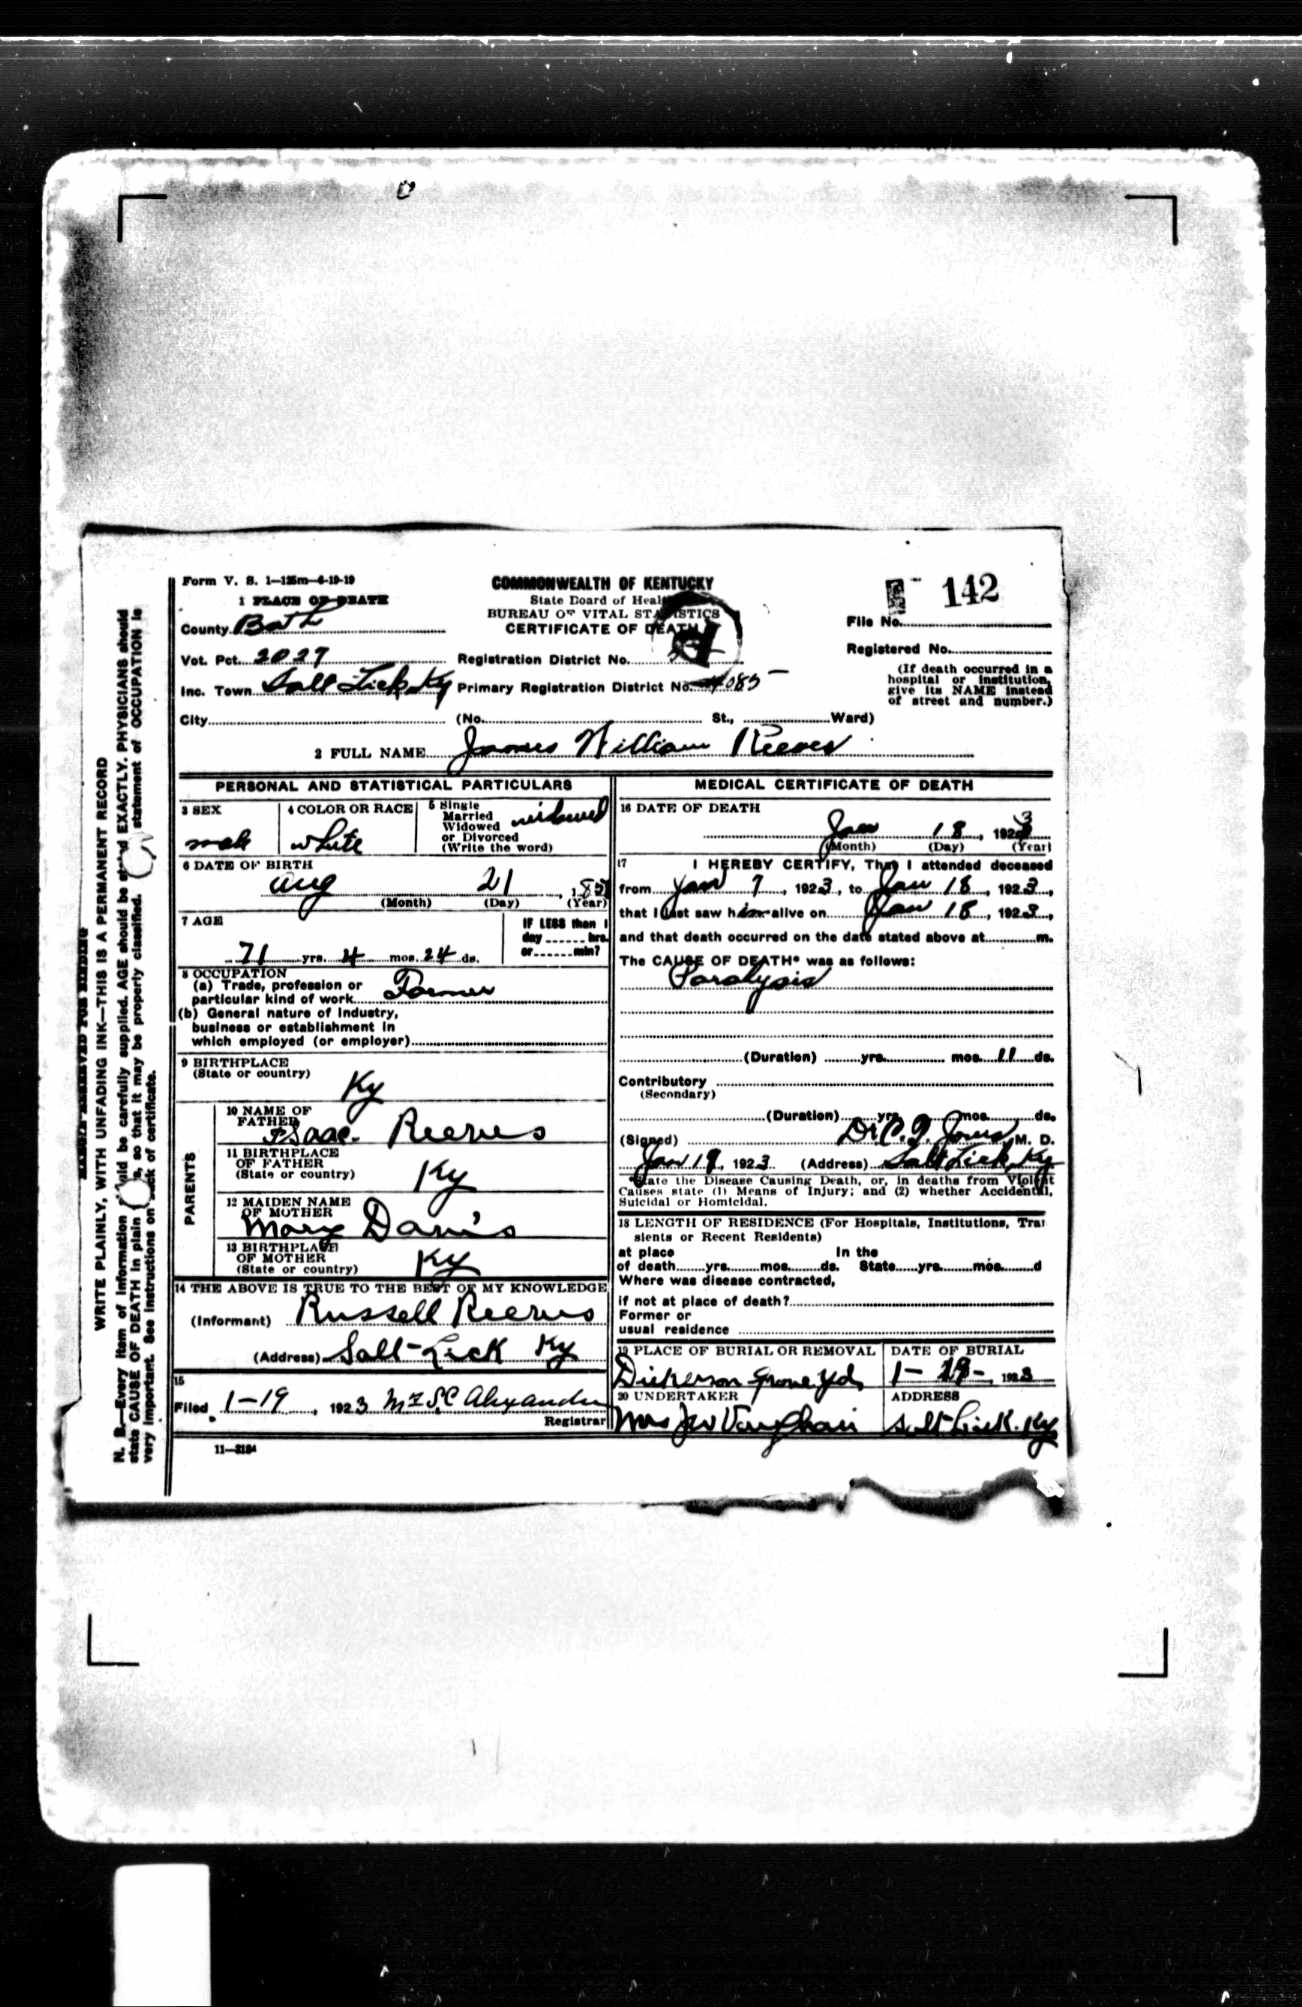 Form V. S. 1—125m—6-19-19
COMMONWEALTH OF KENTUCKY
State Board of Health
BUREAU OF VITAL STATISTICS
CERTIFICATE OF DEATH
142
File No.
Registered No.
(If death occurred in a
hospital or institution,
give its NAME instead
of street and number.)
1 PLACE OF DEATH
County Bath
Vot. Pct. 2027 Registration District No.
Inc. Town Salt Lick Ky Primary Registration District No. 4085
City (No. St., Ward)
2 FULL NAME James William Reeves
PERSONAL AND STATISTICAL PARTICULARS
3 SEX
male
4 COLOR OR RACE
white
5 Single
Married
Widowed
or Divorced
(Write the word)
widowed
6 DATE OF BIRTH
Aug 21, 185
(Month) (Day) (Year)
7 AGE
71 yrs. 4 mos. 24 ds.
IF LESS than 1
day hrs.
or min?
8 OCCUPATION
(a) Trade, profession or
particular kind of work Farmer
(b) General nature of industry,
business or establishment in
which employed (or employer)
9 BIRTHPLACE
(State or country)
Ky
PARENTS
10 NAME OF
FATHER
Isaac Reeves
11 BIRTHPLACE
OF FATHER
(State or country)
Ky
12 MAIDEN NAME
OF MOTHER
Mary Davis
13 BIRTHPLACE
OF MOTHER
(State or country)
Ky
14 THE ABOVE IS TRUE TO THE BEST OF MY KNOWLEDGE
(Informant) Russell Reeves
(Address) Salt-Lick Ky
15
Filed 1-19, 1923 Mrs S.C. Alexander
Registrar
11—3184
MEDICAL CERTIFICATE OF DEATH
16 DATE OF DEATH
Jan 18, 1923
(Month) (Day) (Year)
17 I HEREBY CERTIFY, That I attended deceased
from Jan 7, 1923, to Jan 18, 1923,
that I last saw him alive on Jan 18, 1923,
and that death occurred on the date stated above at m.
The CAUSE OF DEATH* was as follows:
Paralysis
(Duration) yrs. mos. 11 ds.
Contributory
(Secondary)
(Duration) yrs. mos. ds.
(Signed) Dr. Jones M. D.
Jan 19, 1923 (Address) Salt Lick, Ky
*State the Disease Causing Death, or, in deaths from Violent
Causes state (1) Means of Injury; and (2) whether Accidental,
Suicidal or Homicidal.
18 LENGTH OF RESIDENCE (For Hospitals, Institutions, Tran
sients or Recent Residents)
at place In the
of death yrs. mos. ds. State yrs. mos. d
Where was disease contracted,
if not at place of death?
Former or
usual residence
19 PLACE OF BURIAL OR REMOVAL
Dickerson Grave Yd,
DATE OF BURIAL
1-19-, 1923
20 UNDERTAKER
Mrs J W Vaughan
ADDRESS
Salt Lick. Ky
MARGIN RESERVED FOR BINDING
WRITE PLAINLY, WITH UNFADING INK—THIS IS A PERMANENT RECORD
N. B.—Every item of information should be carefully supplied. AGE should be stated EXACTLY. PHYSICIANS should
state CAUSE OF DEATH in plain terms, so that it may be properly classified. statement of OCCUPATION is
very important. See instructions on back of certificate.